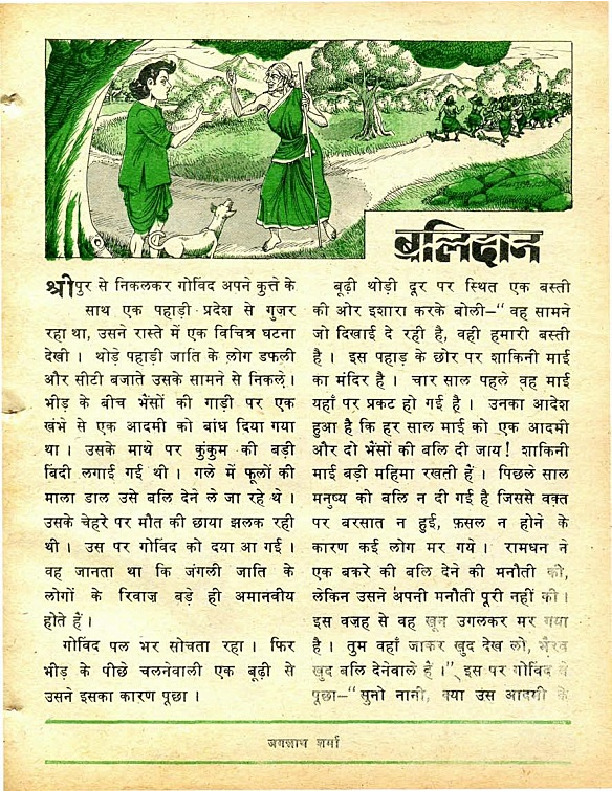 बलिदान
श्रीपुर से निकलकर गोविंद अपने कुत्ते के
साथ एक पहाड़ी प्रदेश से गुजर
रहा था, उसने रास्ते में एक विचित्र घटना
देखी । थोड़े पहाड़ी जाति के लोग डफली
और सीटी बजाते उसके सामने से निकले ।
भीड़ के बीच भैंसों की गाड़ी पर एक
खंभे से एक आदमी को बांध दिया गया
था । उसके माथे पर कुंकुम की बड़ी
बिंदी लगाई गई थी । गले में फूलों की
माला डाल उसे बलि देने ले जा रहे थे ।
उसके चेहरे पर मौत की छाया झलक रही
थी । उस पर गोविंद को दया आ गई ।
वह जानता था कि जंगली जाति के
लोगों के रिवाज़ बड़े ही अमानवीय
होते हैं ।
गोविंद पल भर सोचता रहा । फिर
भीड़ के पीछे चलनेवाली एक बूढ़ी से
उसने इसका कारण पूछा ।
बूढ़ी थोड़ी दूर पर स्थित एक बस्ती
की ओर इशारा करके बोली–“वह सामने
जो दिखाई दे रही है, वही हमारी बस्ती
है । इस पहाड़ के छोर पर शाकिनी माई
का मंदिर है । चार साल पहले वह माई
यहाँ पर प्रकट हो गई है । उनका आदेश
हुआ है कि हर साल माई को एक आदमी
और दो भैंसों की बलि दी जाय! शाकिनी
माई बड़ी महिमा रखती हैं । पिछले साल
मनुष्य को बलि न दी गई है जिससे वक़्त
पर बरसात न हुई, फ़सल न होने के
कारण कई लोग मर गये । रामधन ने
एक बकरे की बलि देने की मनौती की,
लेकिन उसने अपनी मनौती पूरी नहीं की ।
इस वजह से वह खून उगलकर मर गया
है । तुम वहाँ जाकर खुद देख लो, भैरव
खुद बलि देनेवाले हैं ।” इस पर गोविंद ने
पूछा–“सुनो नानी, क्या उस आदमी के
जगन्नाथ शर्मा